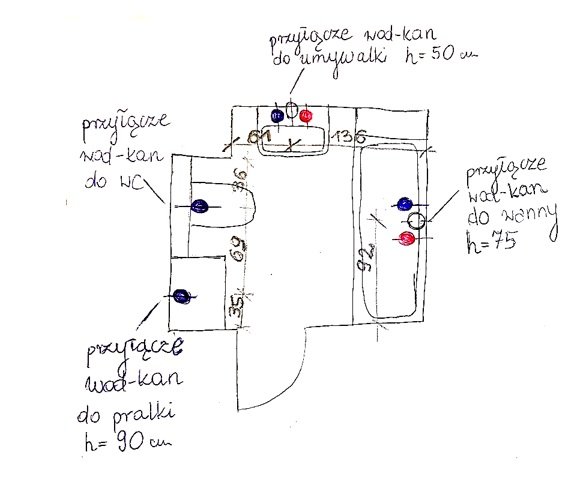 przyłącze wod-kan
do umywalki h= 50 cm
przyłącze
wod-kan
do WC
61 136
przyłącze
wod-kan
do wanny
h=75
36
69
92
35
przyłącze
wod-kan
do pralki
h= 90 cm